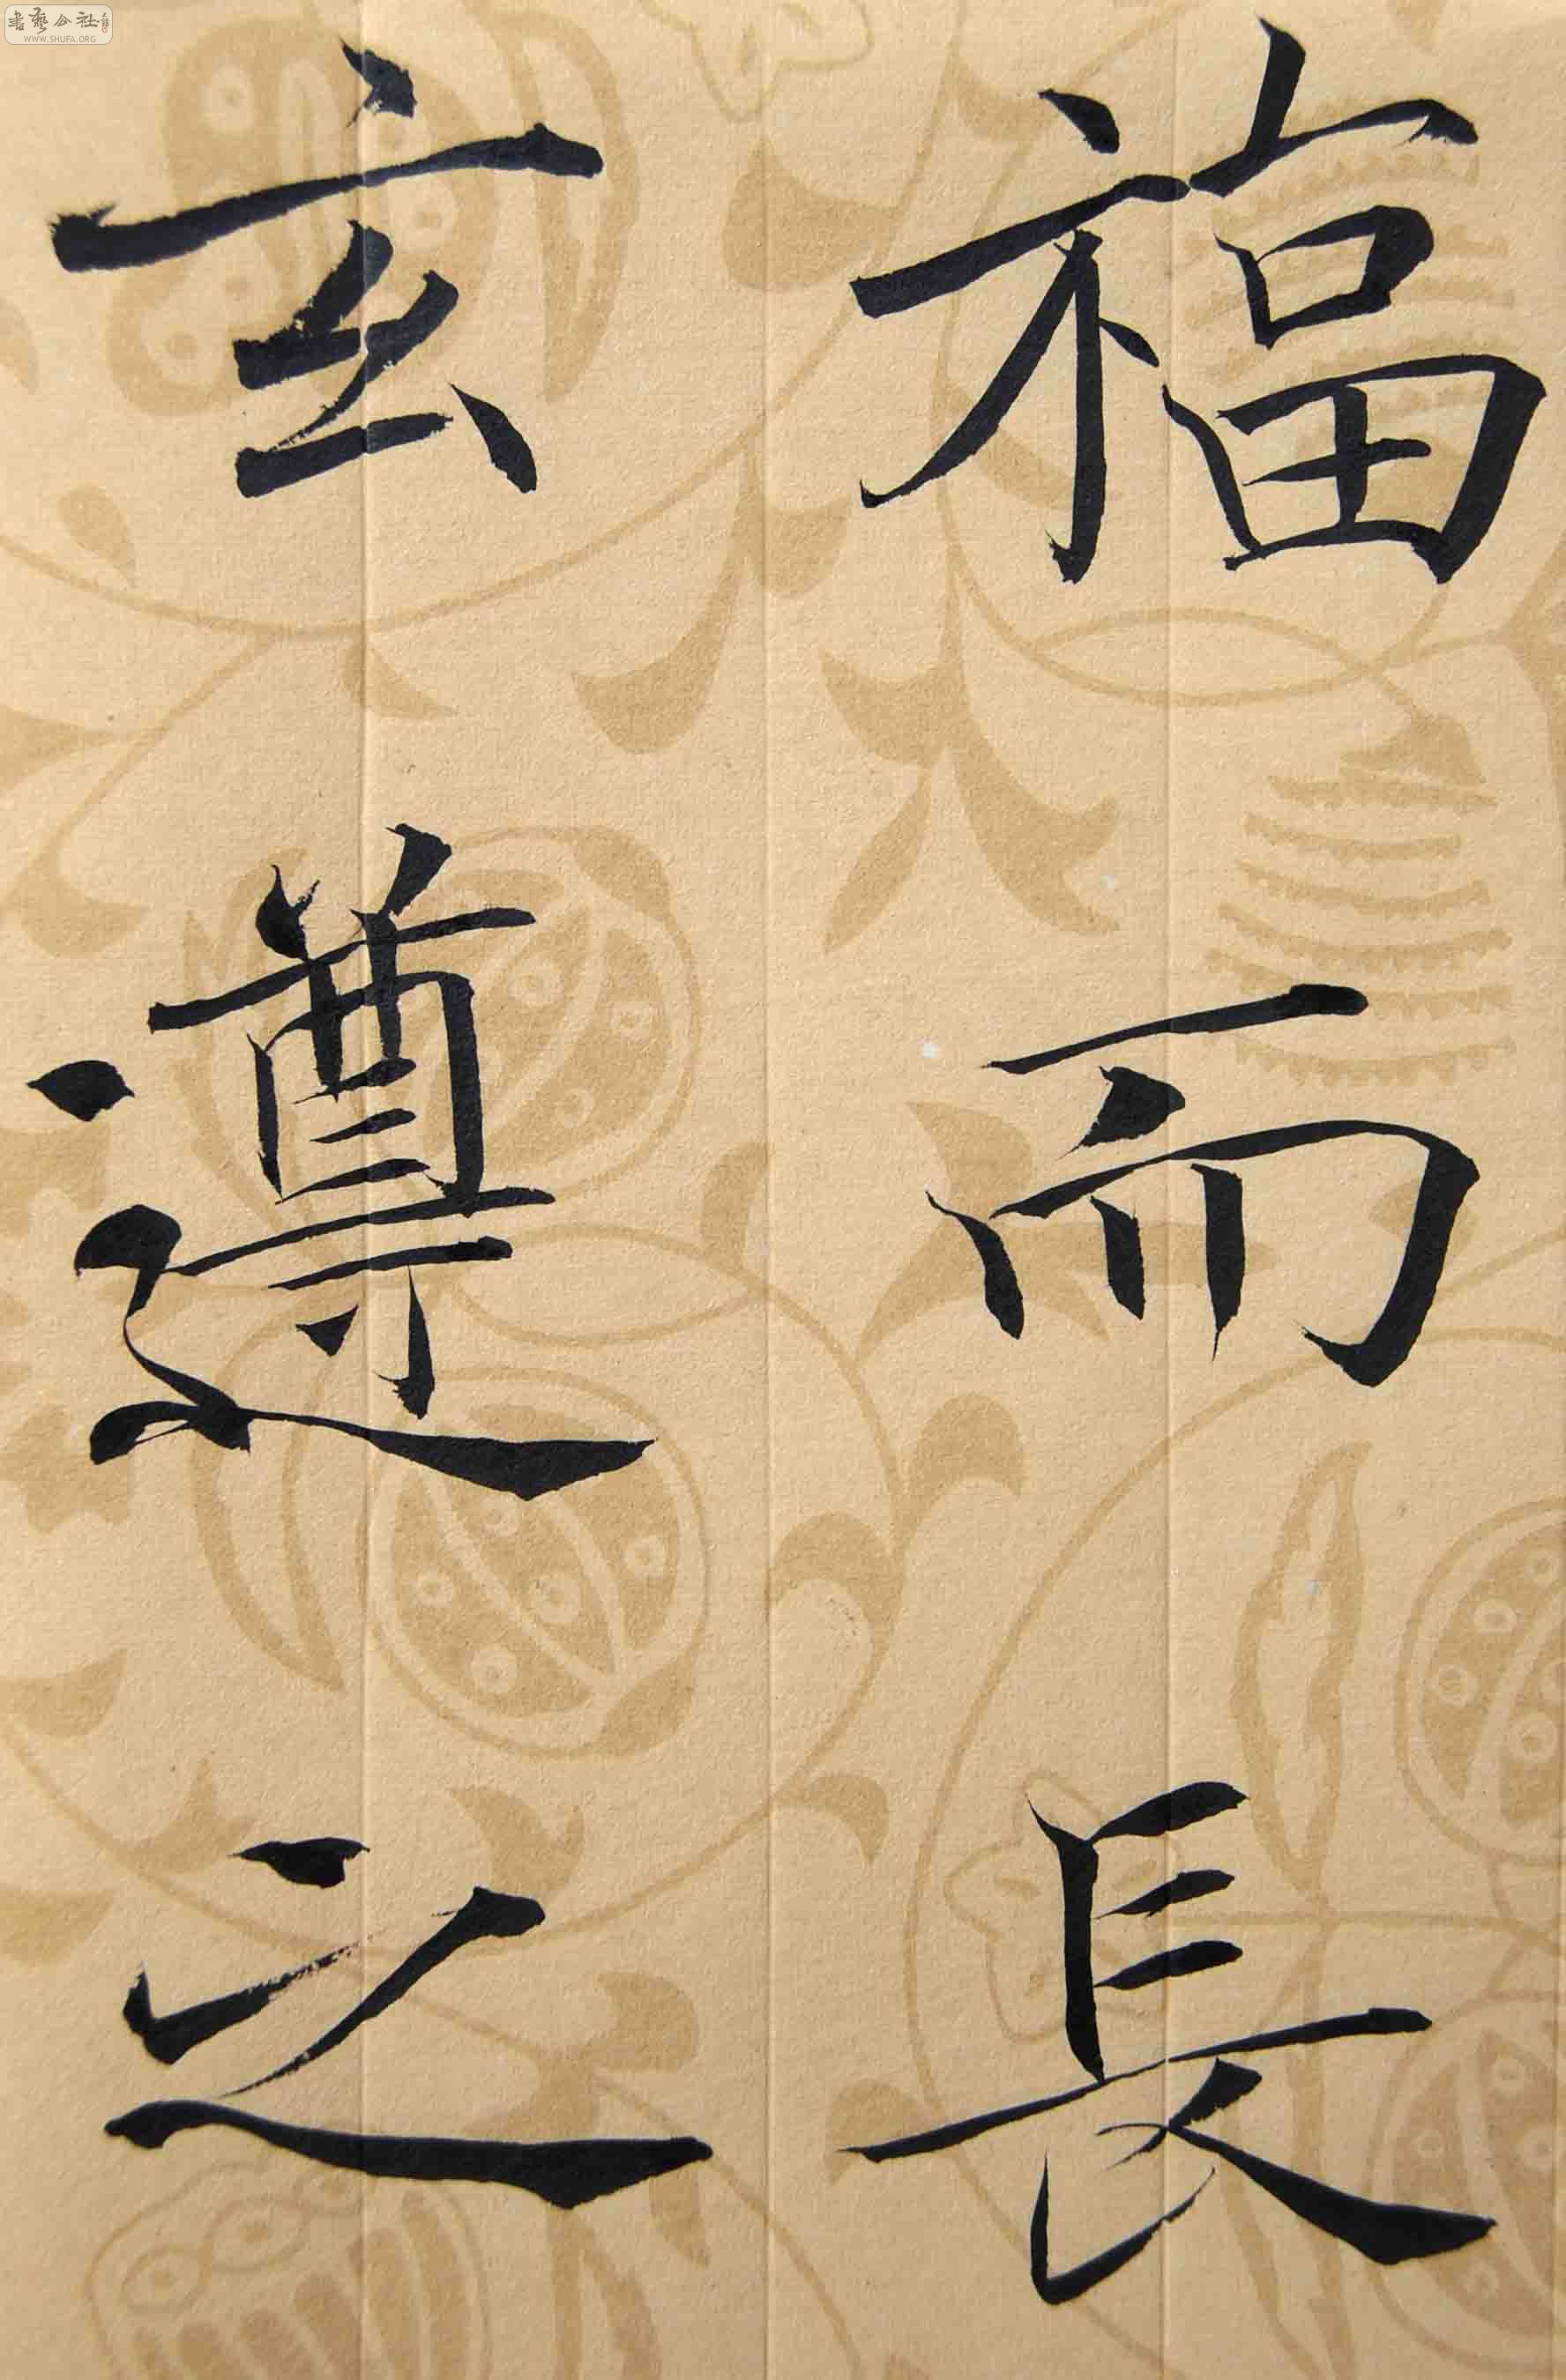 福而長
玄遵之
書藝公社
WWW.SHUFA.ORG